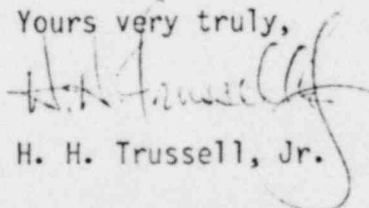 Yours very truly,
H. H. Trussell, Jr.
H. H. Trussell, Jr.